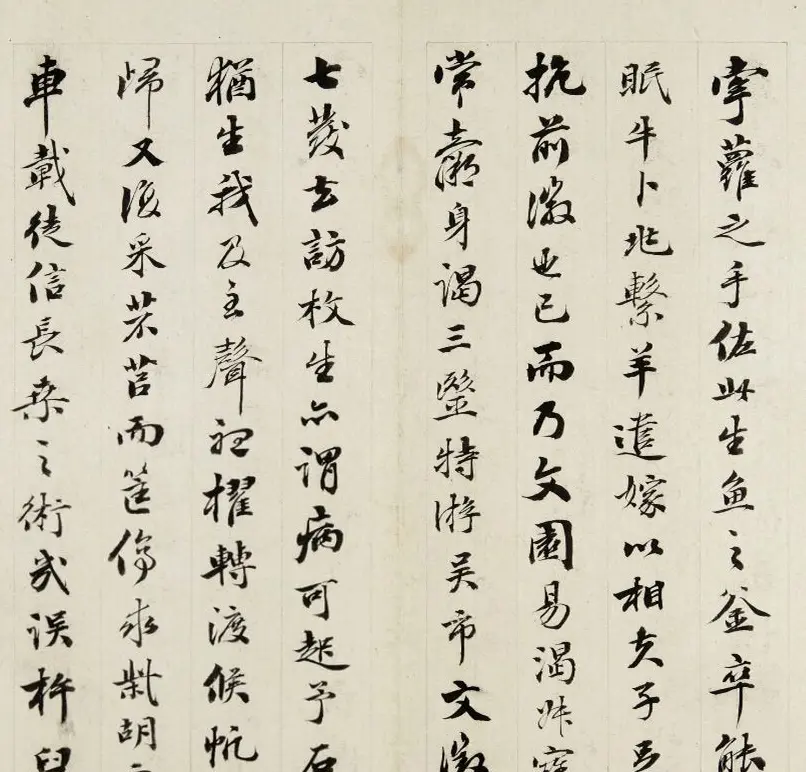 牽蘿之手佐此生魚之釜卒能
眠牛卜兆繫羊遣嫁以相夫子
抗前徽也已而乃文園易渴
常身謁三醫特游吳市文徽
七發去訪枚生亦謂病可起予石
猶生我及聲櫂轉渡候帆
歸又復采芣苢而筐傷求胡
車載徒信長桑之術誤杵臼